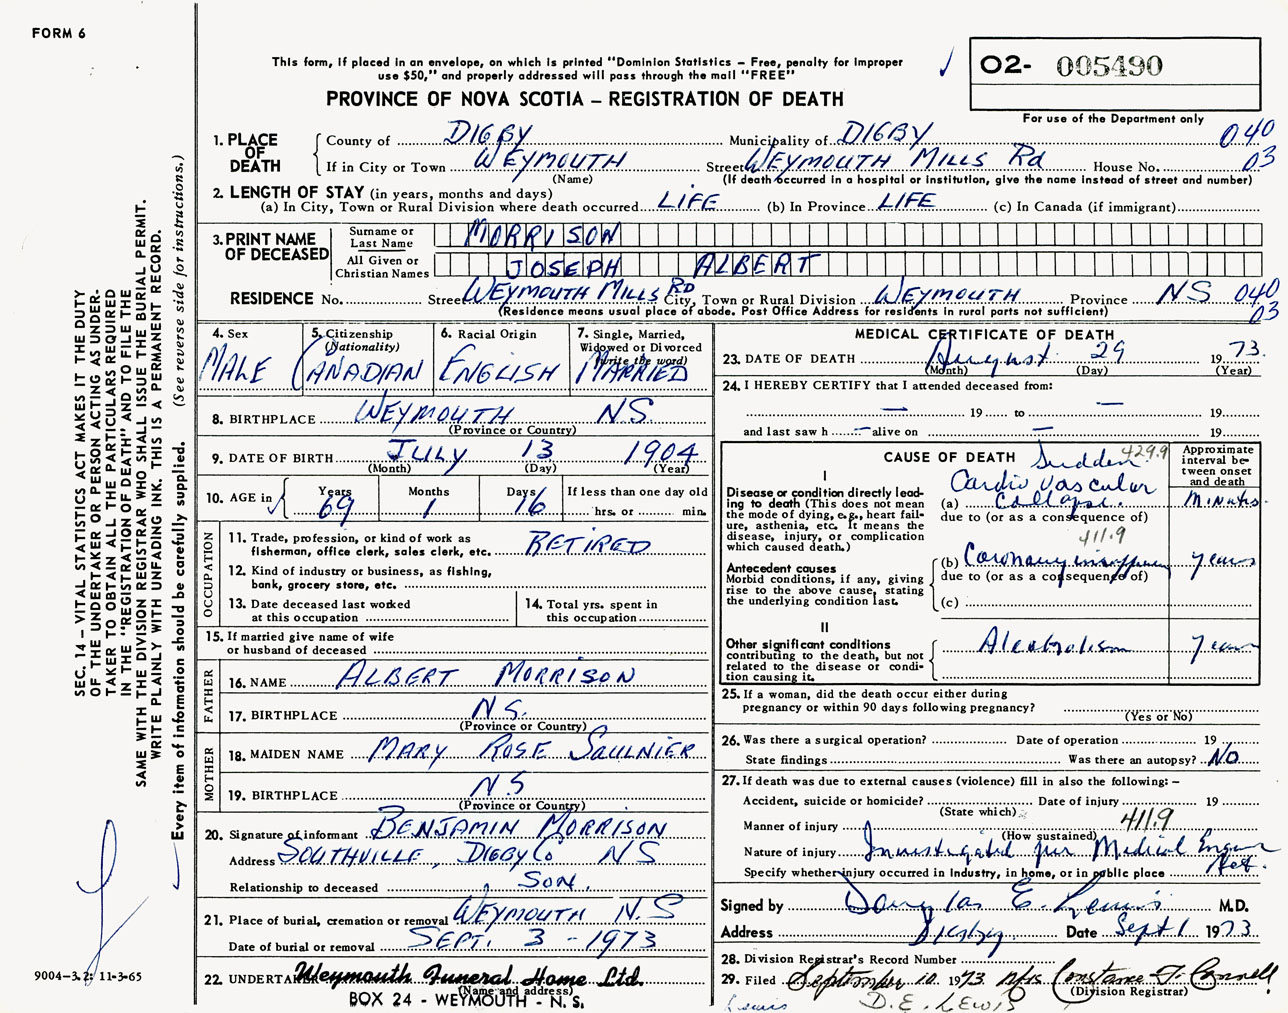 FORM 6
This form, if placed in an envelope, on which is printed "Dominion Statistics – Free, penalty for improper
use $50," and properly addressed will pass through the mail "FREE"
O2- 005490
For use of the Department only
PROVINCE OF NOVA SCOTIA – REGISTRATION OF DEATH
SEC. 14 – VITAL STATISTICS ACT MAKES IT THE DUTY
OF THE UNDERTAKER OR PERSON ACTING AS UNDER-
TAKER TO OBTAIN ALL THE PARTICULARS REQUIRED
IN THE "REGISTRATION OF DEATH" AND TO FILE THE
SAME WITH THE DIVISION REGISTRAR WHO SHALL ISSUE THE BURIAL PERMIT.
WRITE PLAINLY WITH UNFADING INK. THIS IS A PERMANENT RECORD.
Every item of information should be carefully supplied. (See reverse side for instructions.)
1. PLACE OF DEATH
County of DIGBY Municipality of DIGBY 040
If in City or Town WEYMOUTH Street WEYMOUTH MILLS Rd House No. 03
(Name) (If death occurred in a hospital or institution, give the name instead of street and number)
2. LENGTH OF STAY (in years, months and days)
(a) In City, Town or Rural Division where death occurred LIFE (b) In Province LIFE (c) In Canada (if immigrant)
3. PRINT NAME OF DECEASED
Surname or Last Name MORRISON
All Given or Christian Names JOSEPH ALBERT
RESIDENCE No. Street WEYMOUTH MILLS RD City, Town or Rural Division WEYMOUTH Province NS 040
(Residence means usual place of abode. Post Office Address for residents in rural parts not sufficient) 03
4. Sex MALE
5. Citizenship (Nationality) CANADIAN
6. Racial Origin ENGLISH
7. Single, Married, Widowed or Divorced (write the word) MARRIED
8. BIRTHPLACE WEYMOUTH N.S.
(Province or Country)
9. DATE OF BIRTH JULY 13 1904
(Month) (Day) (Year)
10. AGE in Years 69 Months 1 Days 16 If less than one day old
hrs. or min.
OCCUPATION
11. Trade, profession, or kind of work as
fisherman, office clerk, sales clerk, etc. RETIRED
12. Kind of industry or business, as fishing,
bank, grocery store, etc.
13. Date deceased last worked
at this occupation
14. Total yrs. spent in
this occupation
15. If married give name of wife
or husband of deceased
FATHER
16. NAME ALBERT MORRISON
17. BIRTHPLACE N.S.
(Province or Country)
MOTHER
18. MAIDEN NAME MARY ROSE SAULNIER
19. BIRTHPLACE N.S
(Province or Country)
20. Signature of informant BENJAMIN MORRISON
Address SOUTHVILLE, DIGBY Co NS
Relationship to deceased SON.
21. Place of burial, cremation or removal WEYMOUTH N.S
Date of burial or removal SEPT. 3 - 1973
22. UNDERTAKER Weymouth Funeral Home Ltd.
(Name and address)
BOX 24 - WEYMOUTH - N. S.
9004-3.2: 11-3-65
MEDICAL CERTIFICATE OF DEATH
23. DATE OF DEATH August 29 1973.
(Month) (Day) (Year)
24. I HEREBY CERTIFY that I attended deceased from:
— 19 to — 19
and last saw h — alive on — 19
CAUSE OF DEATH
Approximate interval between onset and death
I
Disease or condition directly lead-
ing to death (This does not mean
the mode of dying, e.g., heart fail-
ure, asthenia, etc. It means the
disease, injury, or complication
which caused death.)
Sudden 429.9
Cardio Vascular
(a) Collapse. Minutes
due to (or as a consequence of)
411.9
Antecedent causes
Morbid conditions, if any, giving
rise to the above cause, stating
the underlying condition last.
(b) Coronary insufficiency years
due to (or as a consequence of)
(c)
II
Other significant conditions
contributing to the death, but not
related to the disease or condi-
tion causing it.
Alcoholism years
25. If a woman, did the death occur either during
pregnancy or within 90 days following pregnancy?
(Yes or No)
26. Was there a surgical operation? Date of operation 19
State findings Was there an autopsy? NO
27. If death was due to external causes (violence) fill in also the following: –
Accident, suicide or homicide? Date of injury 19
(State which)
Manner of injury 411.9
(How sustained)
Nature of injury Investigated per Medical Exam Act.
Specify whether injury occurred in industry, in home, or in public place
Signed by Douglas E. Lewis M.D.
Address Digby. Date Sept 1 1973
28. Division Registrar's Record Number
29. Filed September 10 1973 Mrs Constance F. Connell
(Division Registrar)
Lewis D.E. LEWIS